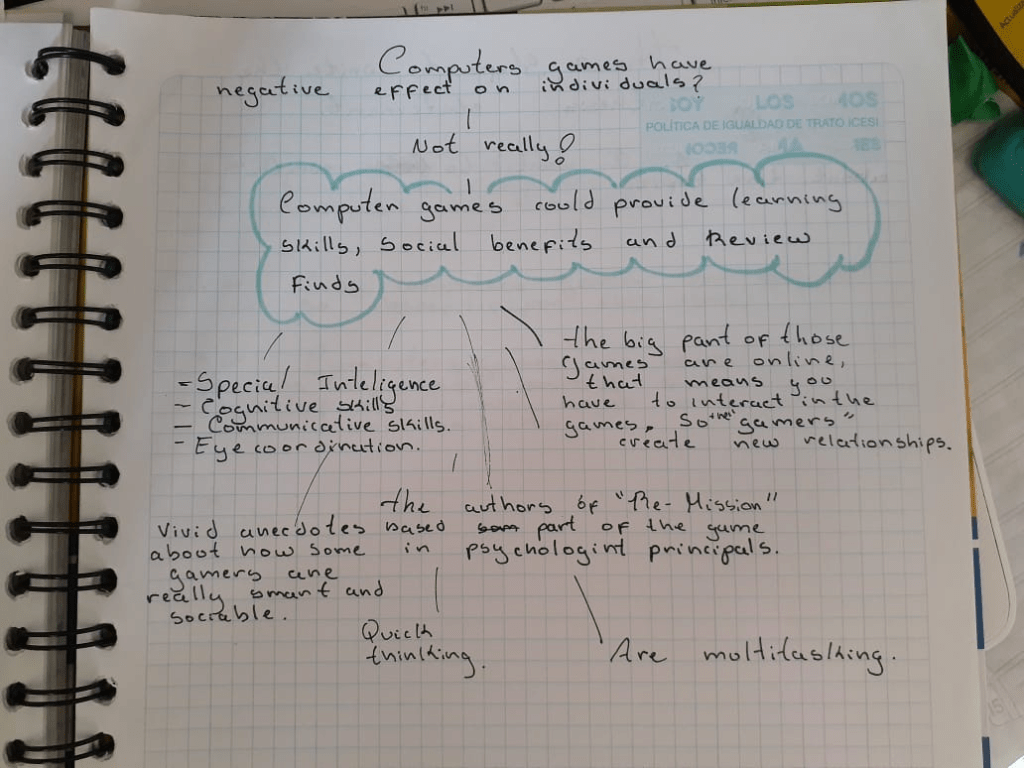 Computers games have
negative effect on individuals?
Not really!
Computer games could provide learning
skills, social benefits and Review
Finds
POLÍTICA DE IGUALDAD DE TRATO ICESI
- Special Inteligence
- Cognitive skills
- Communicative skills.
- Eye coordination.
the big part of those
games are online,
that means you
have to interact in the
games, So "the gamers"
create new relationships.
the authors of "Re-Mission"
based part of the game
in psychologint principals.
Vivid anecdotes
about how some
gamers are
really smart and
sociable.
Quick
thinking.
Are moltitasking.